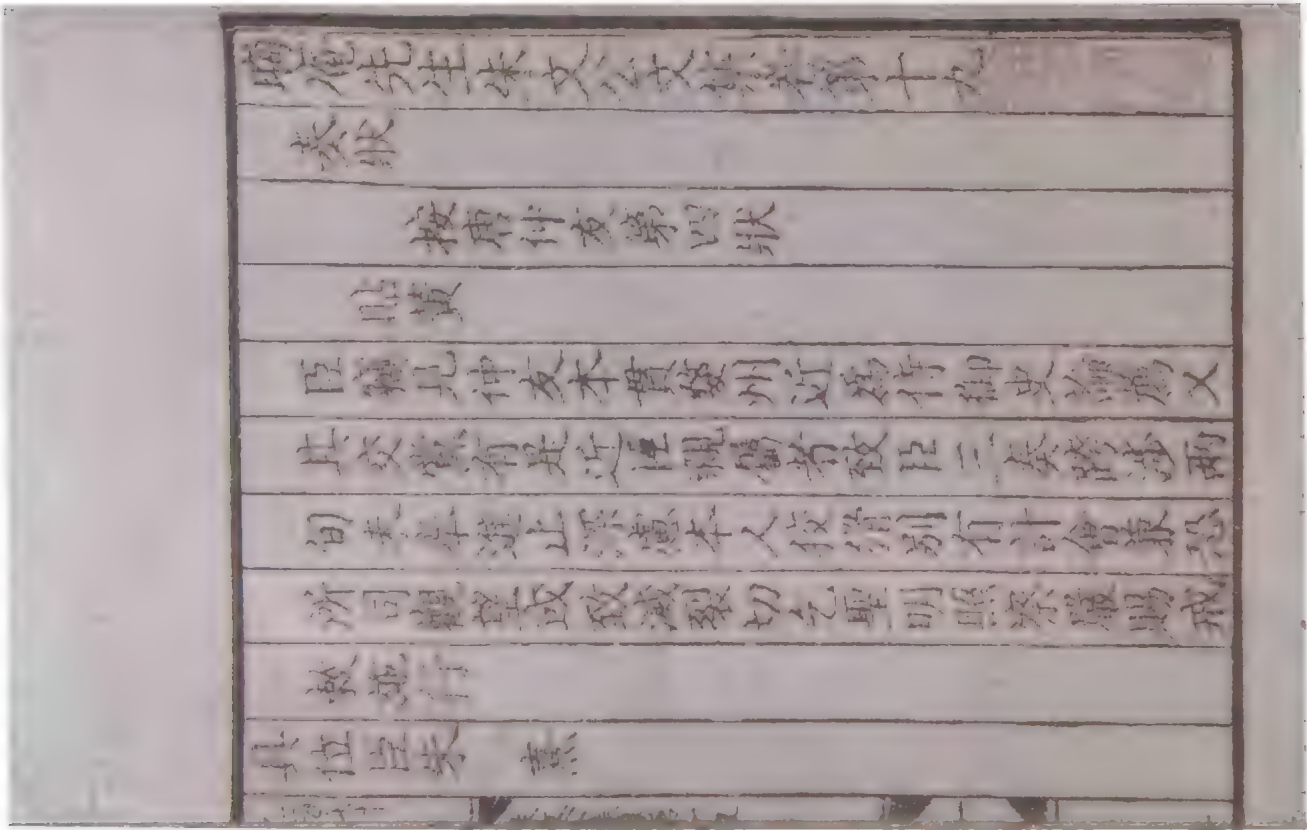 晦庵先生朱文公文集卷第十九
奏狀
按唐仲友第四狀
貼黃
臣竊見仲友本貫婺州近為侍御史論薦又
其交黨有是近臣親屬者致臣三奏跨涉兩
旬未奉進止深慮本人狡猾別有計會兼恐
所司觀望或致滅裂切乞聖明照察嚴賜戒
敕施行
具位臣朱 熹